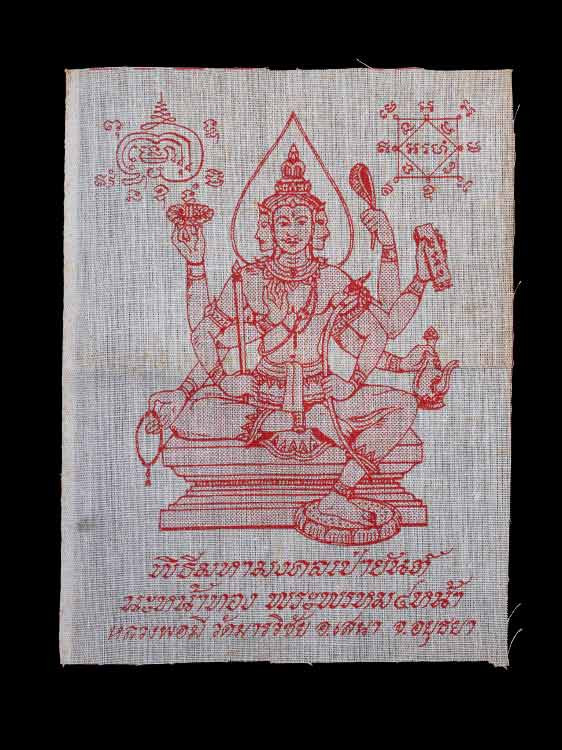 พิธีมหามงคลเป่ายันต์
นะหน้าทอง พระพรหม๔หน้า
หลวงพ่อมี วัดมารวิชัย อ.เสนา จ.อยุธยา